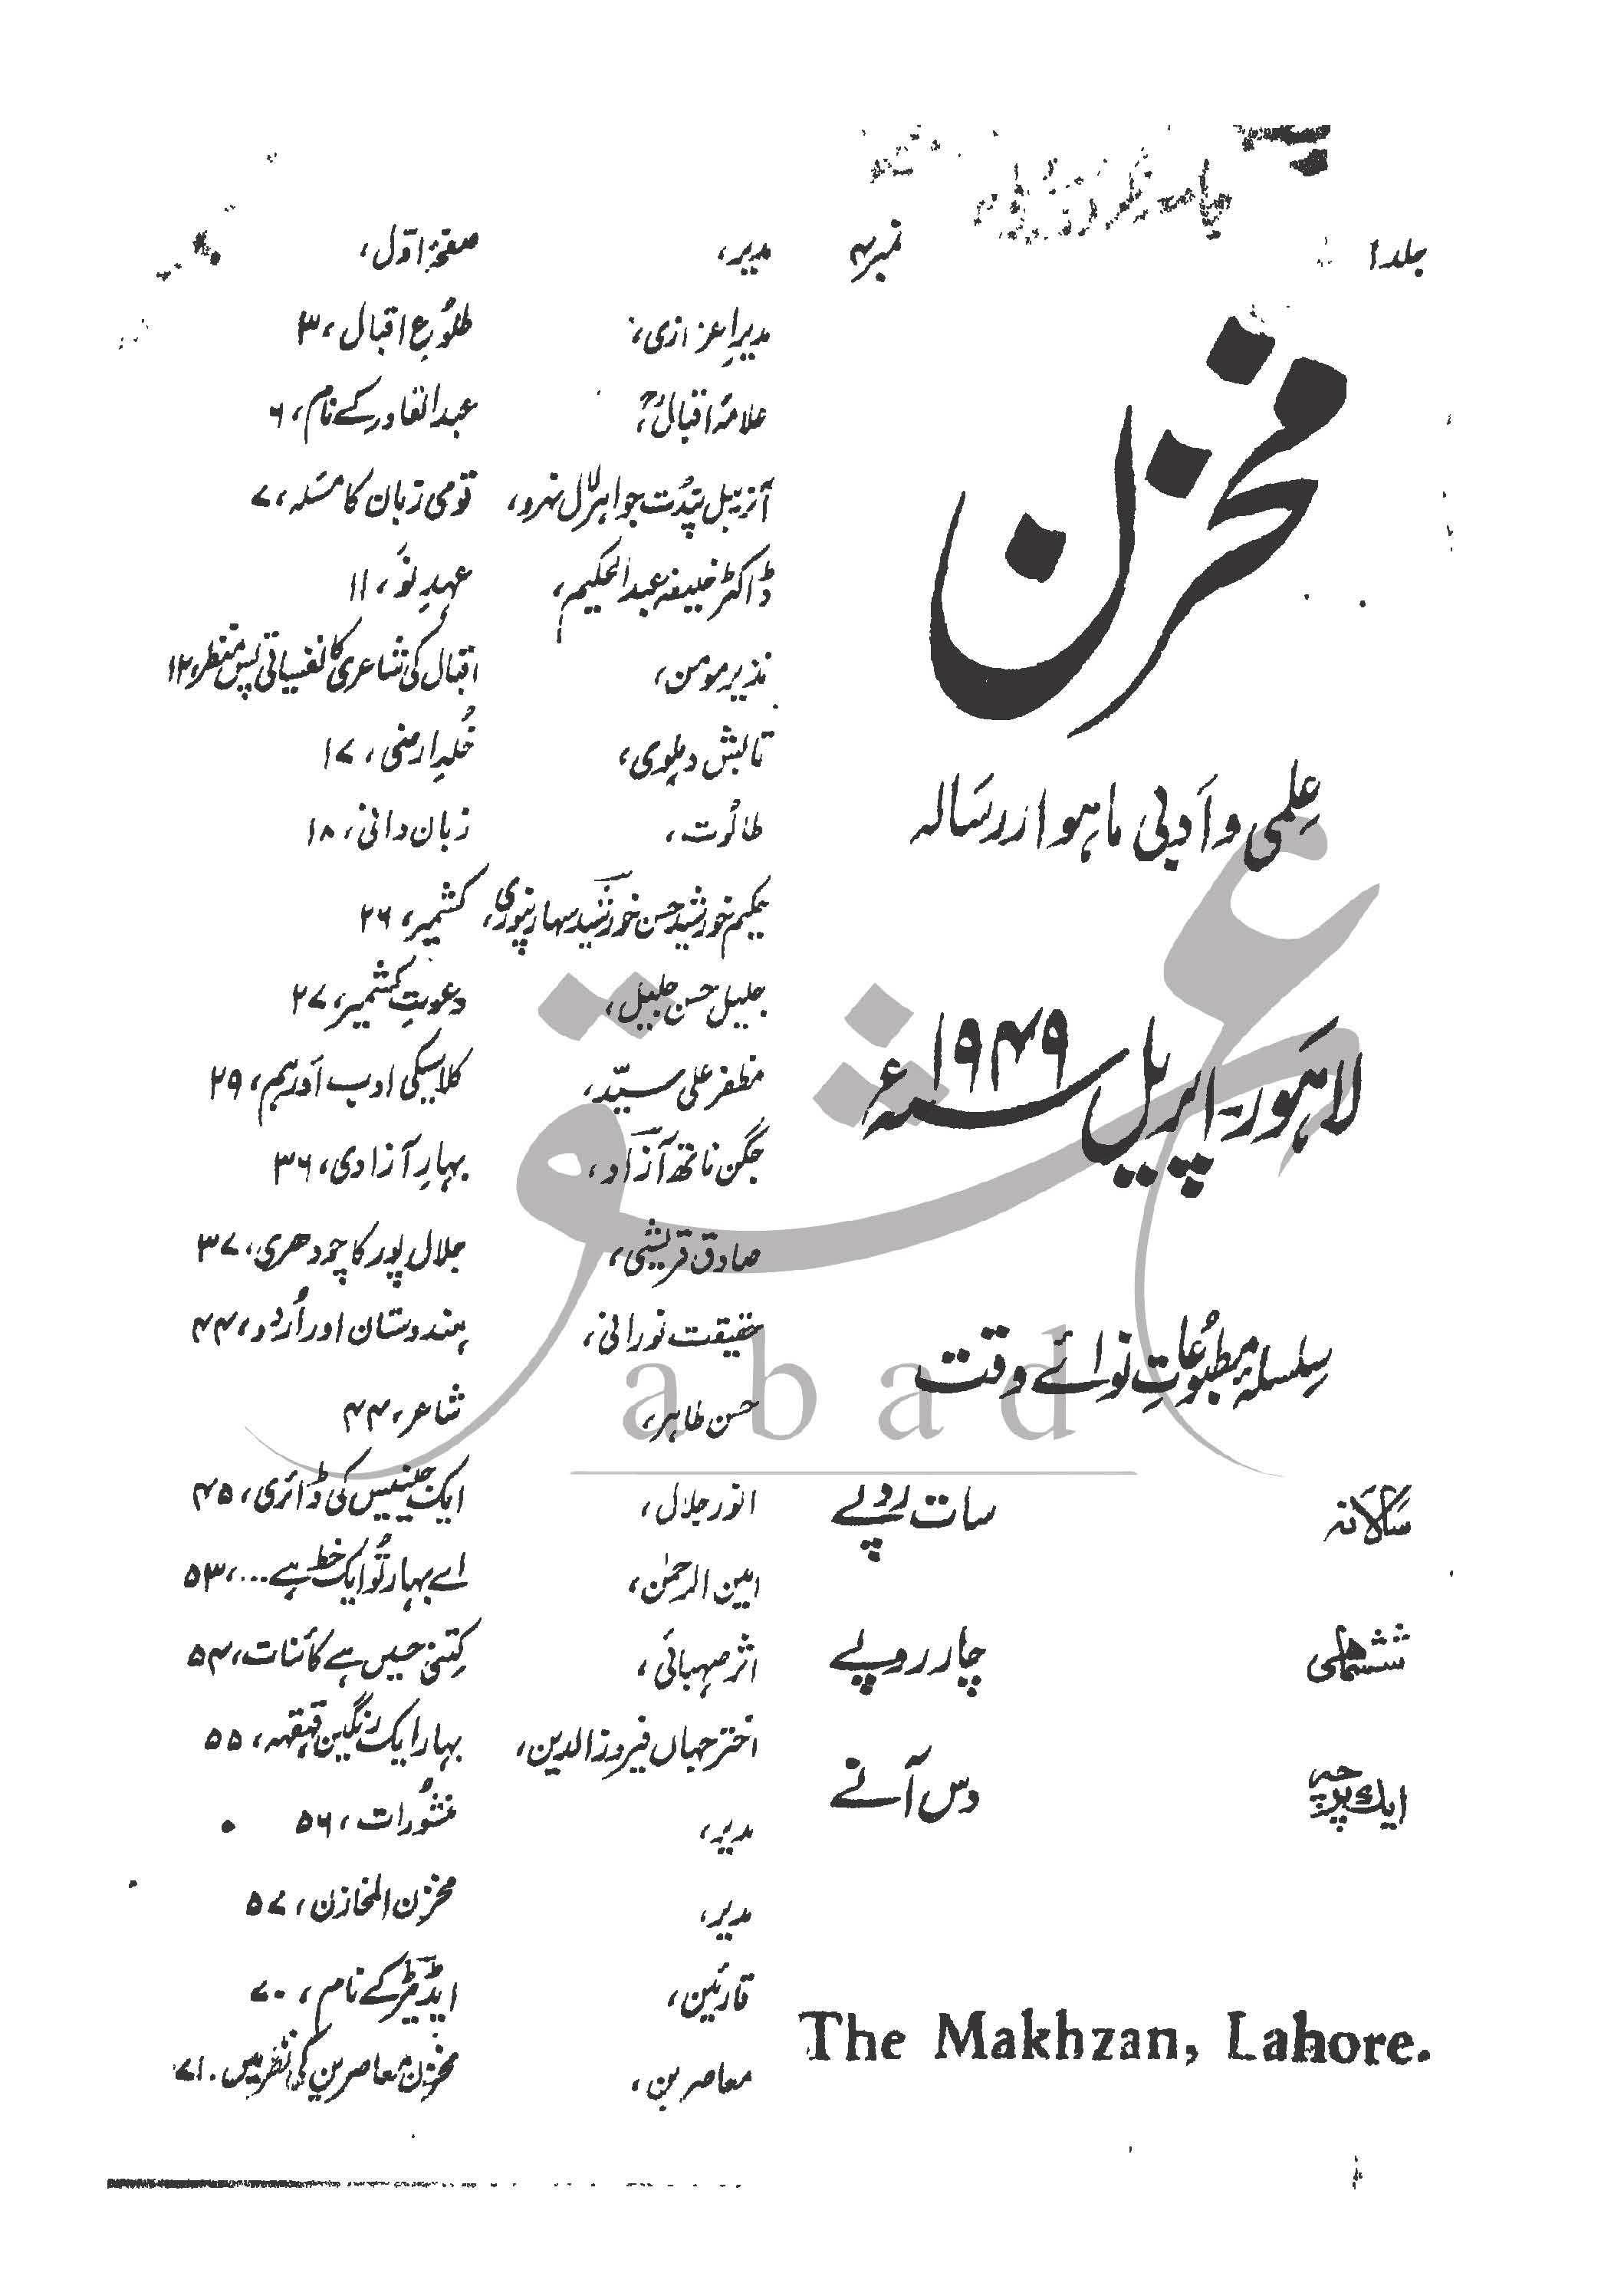 جلد ۱
نمبر ۴
مخزن
عِلمی و اَدبی ماہوار رسَالہ
لاہَور۔ اپریل سنہ ۱۹۴۹ء
سِلسلۂ مطبُوعاتِ نوائے وقت
سَالانہ سات روپے
ششماہی چار روپے
ایک پرچہ دس آنے
The Makhzan, Lahore.
مدیر، صفحۂ اوّل،
مدیرِ اعزازی، طلوُعِ اقبال، ۳
علامہ اقبالؒ، عبدالقادر کے نام، ۶
آنریبل پنڈت جواہر لال نہرو، قومی زبان کا مسَلہ، ۷
ڈاکٹر خلیفہ عبدالحکیم، عہدِ نَو، ۱۱
نذیر مومن، اقبال کی شاعری کا نفسیاتی پس منظر، ۱۲
تابش دہلوی، خُلدِ ارضی، ۱۷
طالُوت، زبان دانی، ۱۸
حکیم خورشید حسن خورشید سہارنپوری، کشمیر، ۲۶
جلیل حسن جلیل، دعوتِ کشمیر، ۲۷
مظفر علی سیّد، کلاسیکی ادب اَور ہم، ۲۹
جگن ناتھ آزاد، بہارِ آزادی، ۳۶
صادق قریشی، جلال پور کا چودھری، ۳۷
حقیقت نورانی، ہندوستان اور اُردو، ۴۴
حسن طاہر، شاعر، ۴۴
انور جلال، ایک جینیس کی ڈائری، ۴۵
امین الرحمٰن، اے بہار تُو ایک خط ہے...، ۵۳
اثر صہبائی، کِتنی حسیں ہے کائنات، ۵۴
اختر جہاں فیروزالدین، بہار ایک رنگین قہقہہ، ۵۵
مدیر، منشُورات، ۵۶
مدیر، مخزن المخازن، ۵۷
قارئین، ایڈیٹر کے نام، ۷۰
معاصرین، مخزن معاصرین کی نظر میں۔ ۷۱
عشق
abad